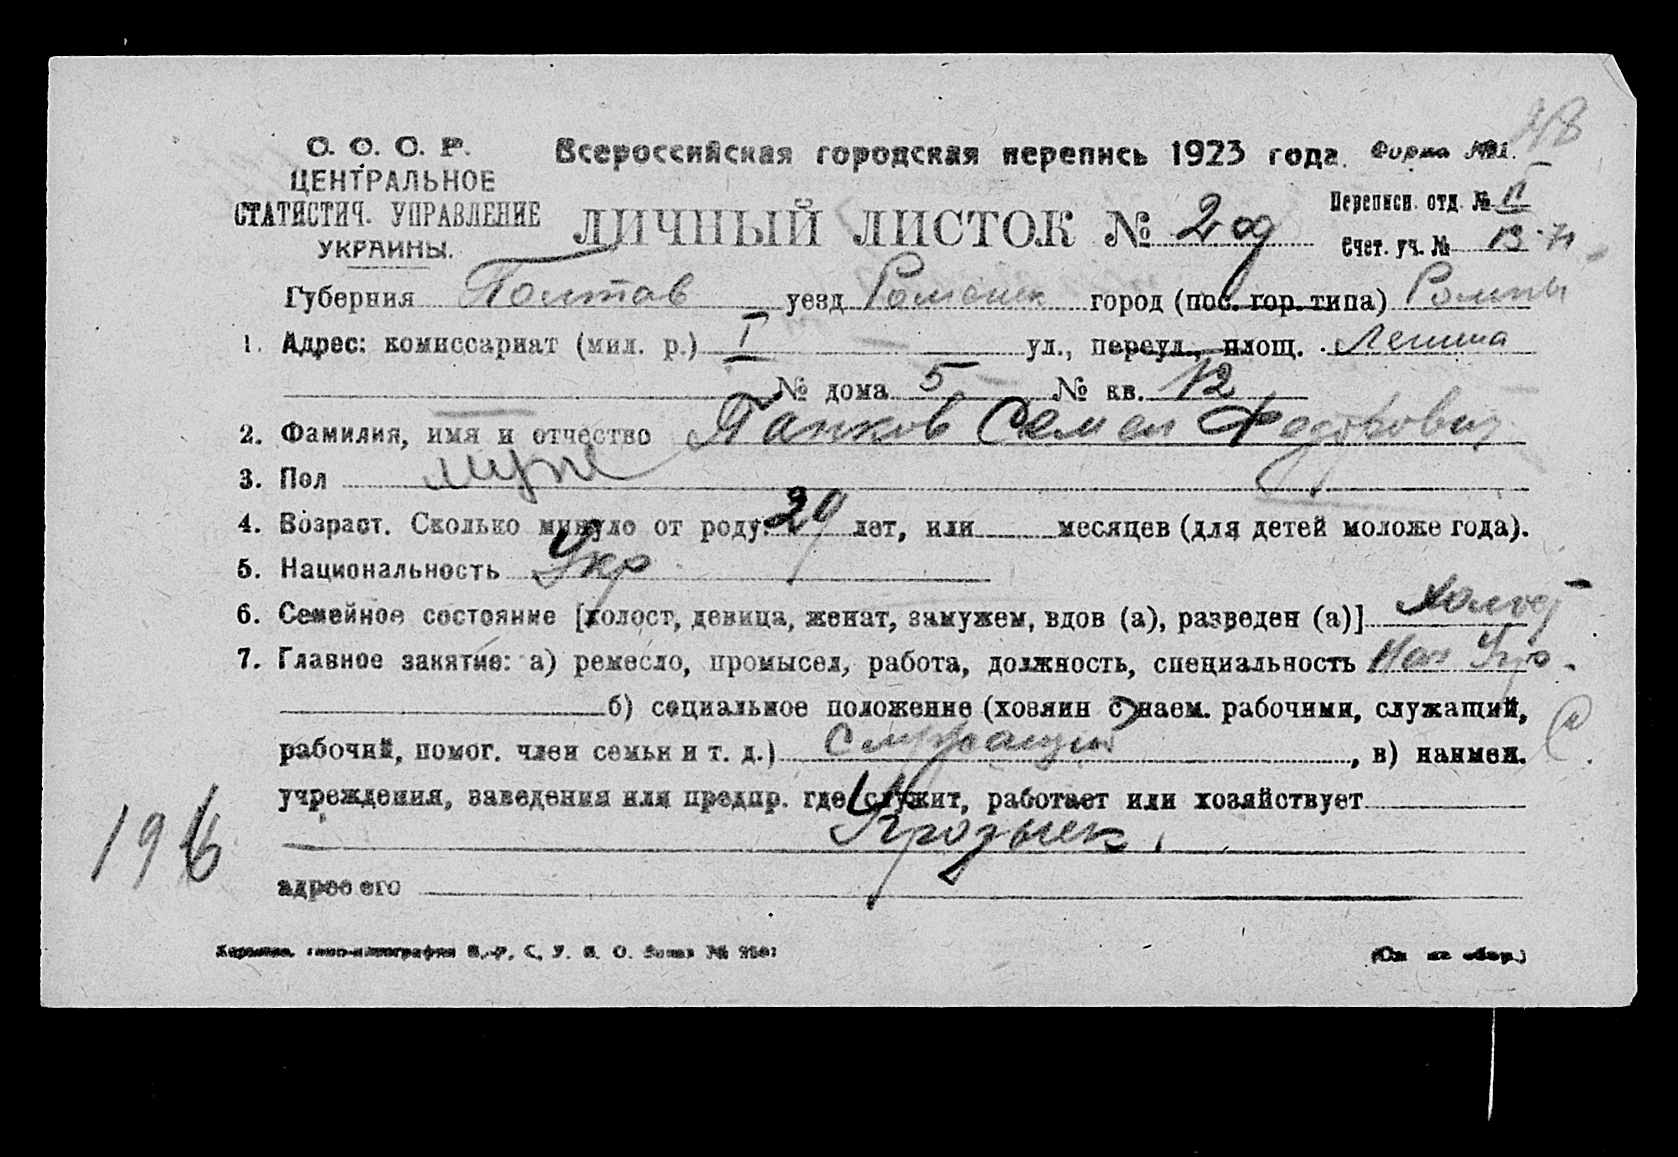 48
С. С. С. Р.
ЦЕНТРАЛЬНОЕ
СТАТИСТИЧ. УПРАВЛЕНИЕ
УКРАИНЫ.
Всероссийская городская перепись 1923 года. Форма №1.
ЛИЧНЫЙ ЛИСТОК №
Переписн. отд. № II
Счет. уч. №
Губерния Полтав уезд Роменск город (пос. гор. типа) Ромны
1. Адрес: комиссариат (мил. р.) I ул., переул., площ. Ленина
№ дома 5 № кв. 12
2. Фамилия, имя и отчество Папков Семен Федорович
3. Пол муж
4. Возраст. Сколько минуло от роду 29 лет, или месяцев (для детей моложе года).
5. Национальность Укр
6. Семейное состояние [холост, девица, женат, замужем, вдов (а), разведен (а)] Холост
7. Главное занятие: а) ремесло, промысел, работа, должность, специальность
б) социальное положение (хозяин с наем. рабочими, служащий,
рабочий, помог. член семьи и т. д.) Служащий, в) наимен.
учреждения, заведения или предпр. где служит, работает или хозяйствует
адрес его
196
(См. на обор.)